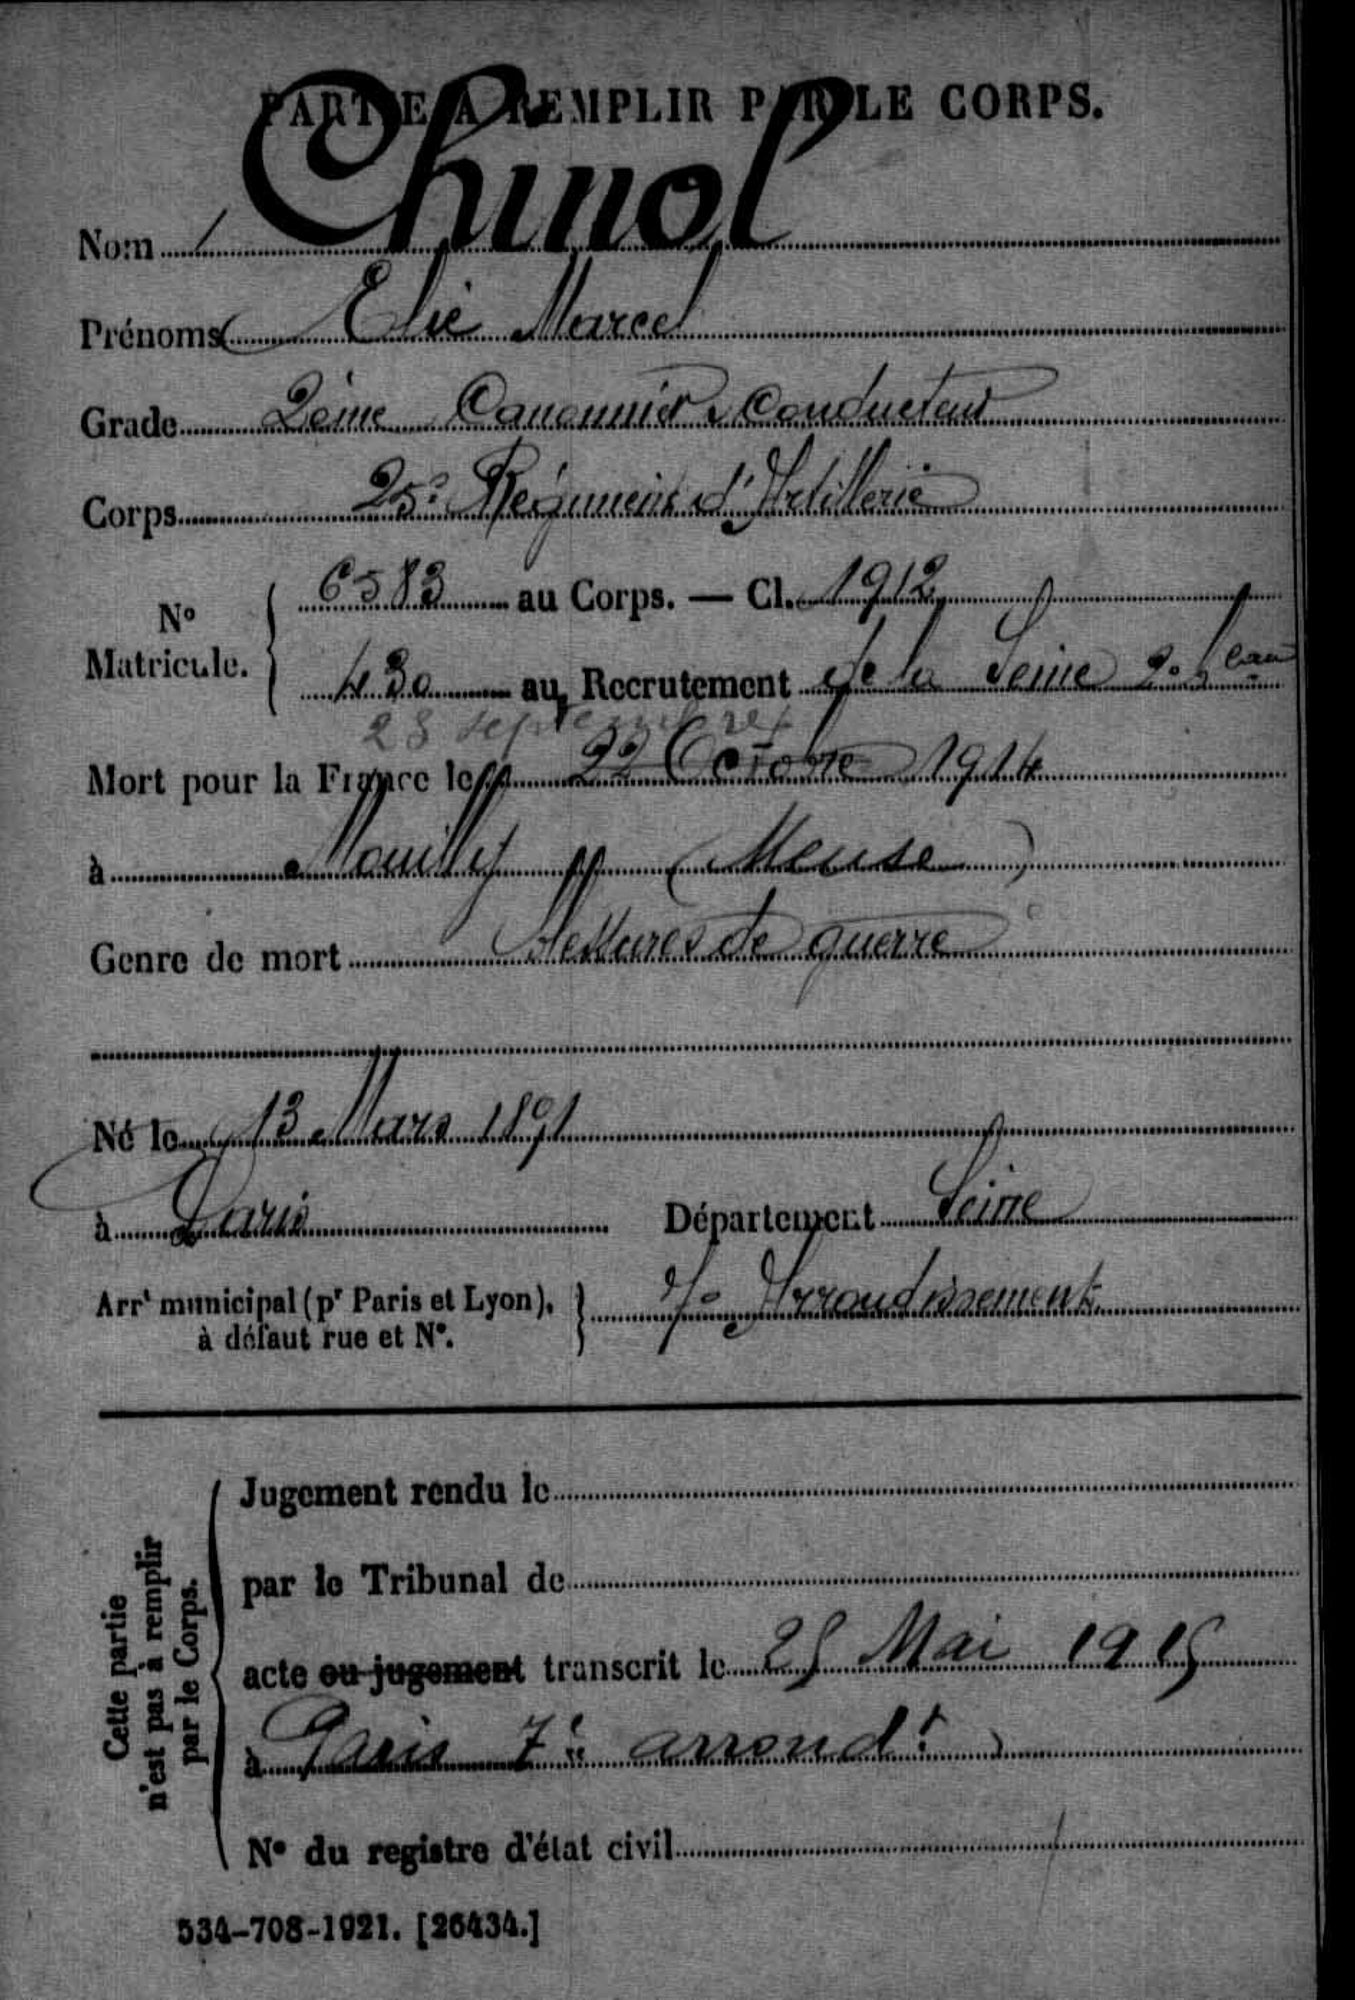 PARTIE À REMPLIR PAR LE CORPS.
Nom Chinol
Prénoms Elie Marcel
Grade 2ème Canonnier Conducteur
Corps 25e Régiment d'Artillerie
N° Matricule. { 6583 au Corps. — Cl. 1912
430 au Recrutement de la Seine 2e Beau
28 septembre
Mort pour la France le 22 Octobre 1914
à Mouilly (Meuse)
Genre de mort blessures de guerre
Né le 13 Mars 1891
à Paris Département Seine
Arrt municipal (pr Paris et Lyon), à défaut rue et N°. } 7e Arrondissement
Cette partie n'est pas à remplir par le Corps.
Jugement rendu le
par le Tribunal de
acte ou jugement transcrit le 25 Mai 1915
à Paris 7e arrondt
N° du registre d'état civil
534-708-1921. [26434.]